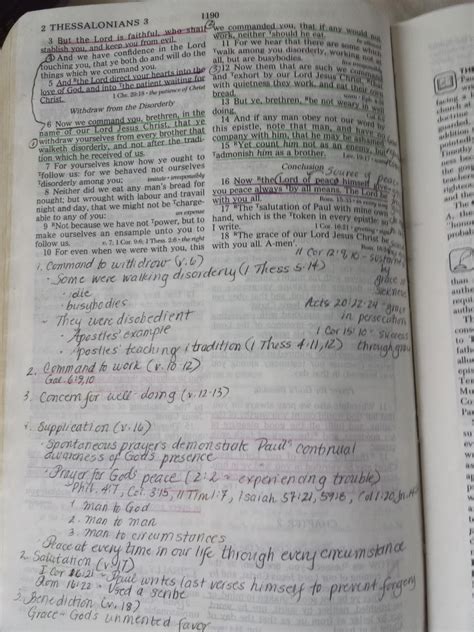 2 THESSALONIANS 3
1190
3 But the Lord is faithful, who shall
stablish you, and keep you from evil.
4 And we have confidence in the Lord
touching you, that ye both do and will do the
things which we command you.
5 And the Lord direct your hearts into the
love of God, and into the patient waiting for
Christ.
1 Chr. 29:18 · the patience of Christ
Withdraw from the Disorderly
6 Now we command you, brethren, in the
name of our Lord Jesus Christ, that ye
withdraw yourselves from every brother that
walketh disorderly, and not after the tradi-
tion which he received of us.
7 For yourselves know how ye ought to
follow us: for we behaved not ourselves
disorderly among you;
8 Neither did we eat any man's bread for
nought; but wrought with labour and travail
night and day, that we might not be charge-
able to any of you:
9 Not because we have not power, but to
make ourselves an ensample unto you to
follow us.
v. 7; 1 Cor. 9:6; 1 Thess. 2:6 · the right
10 For even when we were with you, this
we commanded you, that if any would not
work, neither should he eat.
11 For we hear that there are some which
walk among you disorderly, working not at
all, but are busybodies.
12 Now them that are such we command
and exhort by our Lord Jesus Christ, that
with quietness they work, and eat their own
bread.
13 But ye, brethren, be not weary in well
doing.
14 And if any man obey not our word by
this epistle, note that man, and have no
company with him, that he may be ashamed.
15 Yet count him not as an enemy, but
admonish him as a brother.
Lev. 19:17
Conclusion
Source of peace
16 Now the Lord of peace himself give
you peace always by all means. The Lord be
with you all.
17 The salutation of Paul with mine own
hand, which is the token in every epistle: so
I write.
18 The grace of our Lord Jesus Christ be
with you all. A-men'.
1. Command to withdraw (v.6)
- Some were walking disorderly (1 Thess 5:14)
· idle
· busybodies
- They were disobedient
· Apostles' example
· Apostles' teaching/tradition (1 Thess 4:11,12)
11 Cor 12:8,10 - sustained
by
grace in
sickness
Acts 20:22-24 grace
in persecution
1 Cor 15:10 - success
through grace
2. Command to work (v. 10-12)
Gal 6:9,10
3. Concern for well-doing (v. 12-13)
1. Supplication (v.16)
· Spontaneous prayers demonstrate Paul's continual
awareness of God's presence
· Prayer for God's peace (2:2 - experiencing trouble)
- Phil. 4:7, Col. 3:15, 11 Tim 1:7, Isaiah 57:21, 59:8, Col 1:20,
1. man to God
2. man to man
3. man to circumstances
Peace at every time in our life through every circumstance
2. Salutation (v.17)
I Cor 16:21 - Paul writes last verses himself to prevent forgery
Rom 16:22 - Used a scribe
3. Benediction (v.18)
Grace - God's unmerited favor